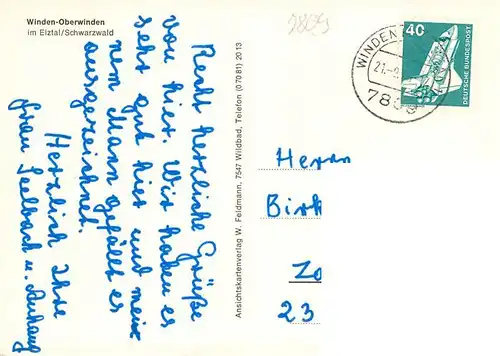 Winden-Oberwinden
im Elztal/Schwarzwald
Recht herzliche Grüße
von hier. Wir haben es
sehr gut hier und mei-
nem Mann gefällt es
ausgezeichnet.
Herzlich Ihre
Frau Seelbach u. Anhang
Ansichtskartenverlag W. Feldmann, 7547 Wildbad, Telefon (0 70 81) 20 13
WINDEN
21.-
78
40
DEUTSCHE BUNDESPOST
Herrn
Birk
Zo
23